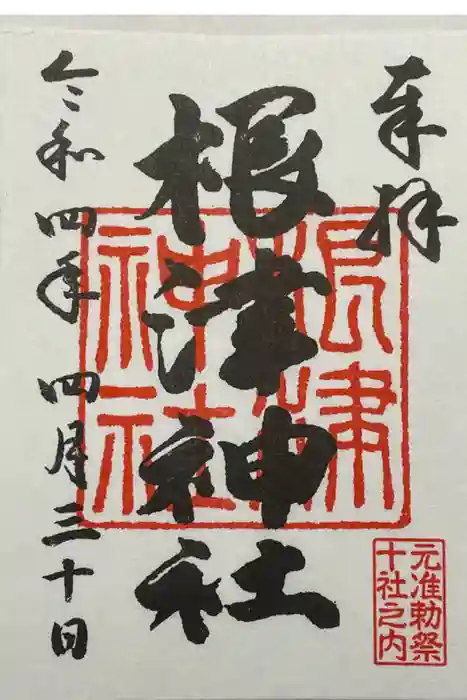 奉拝
根津神社
根津神社
令和四年四月三十日
元准勅祭
十社之内